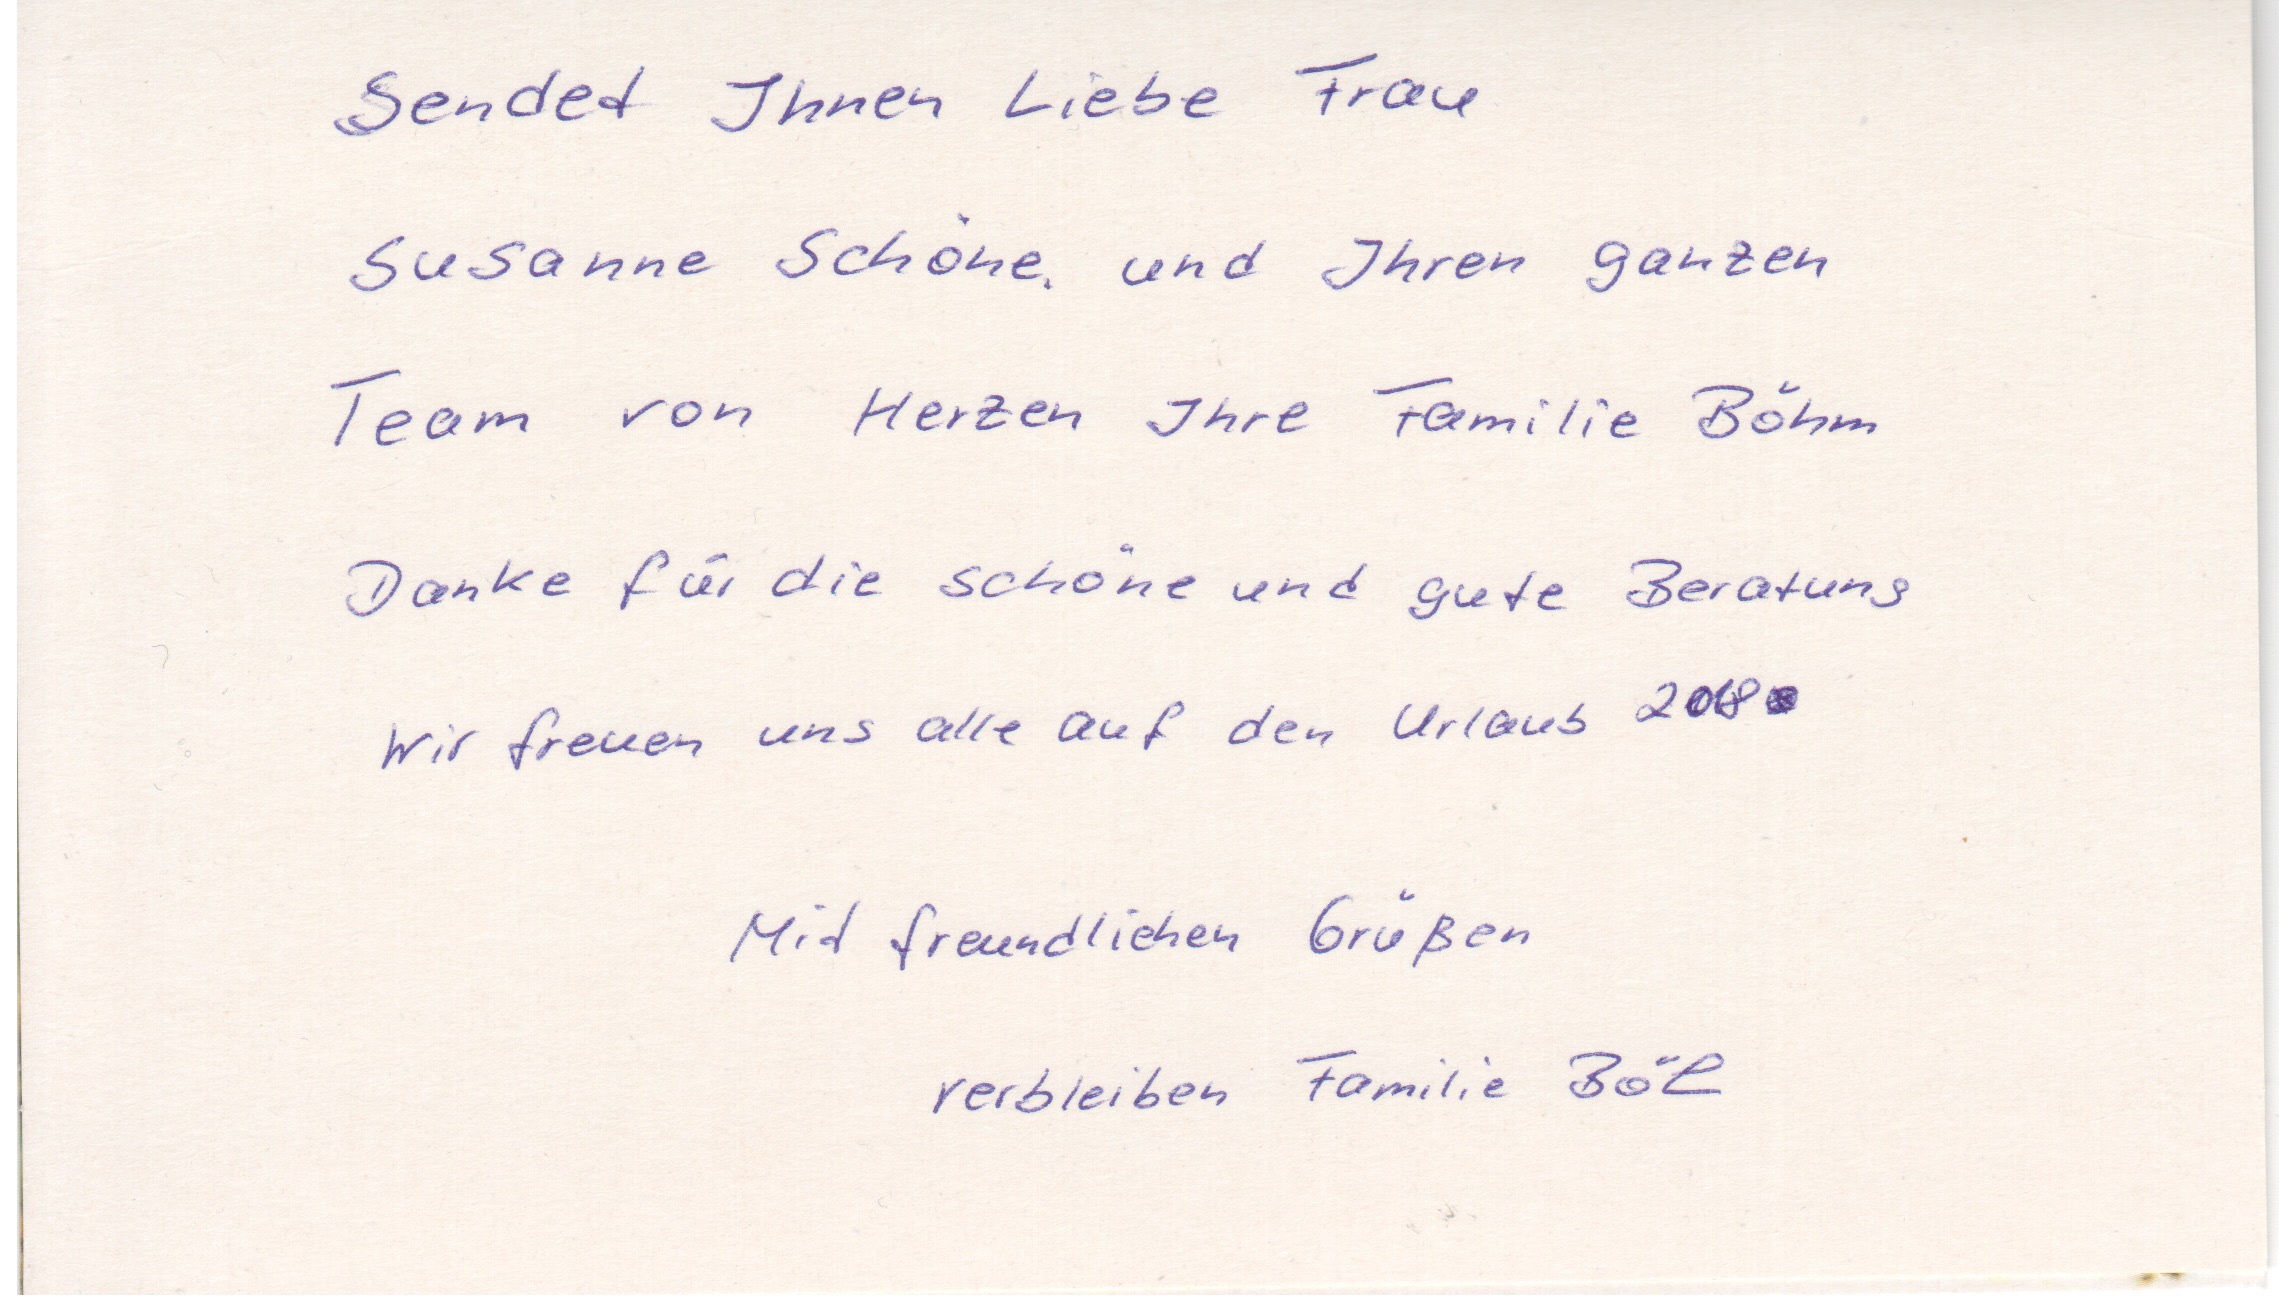 Sendet Ihnen Liebe Frau
Susanne Schöne. und Ihren ganzen
Team von Herzen Ihre Familie Böhm
Danke für die schöne und gute Beratung
Wir freuen uns alle auf den Urlaub 2018
Mit freundlichen Grüßen
verbleiben Familie